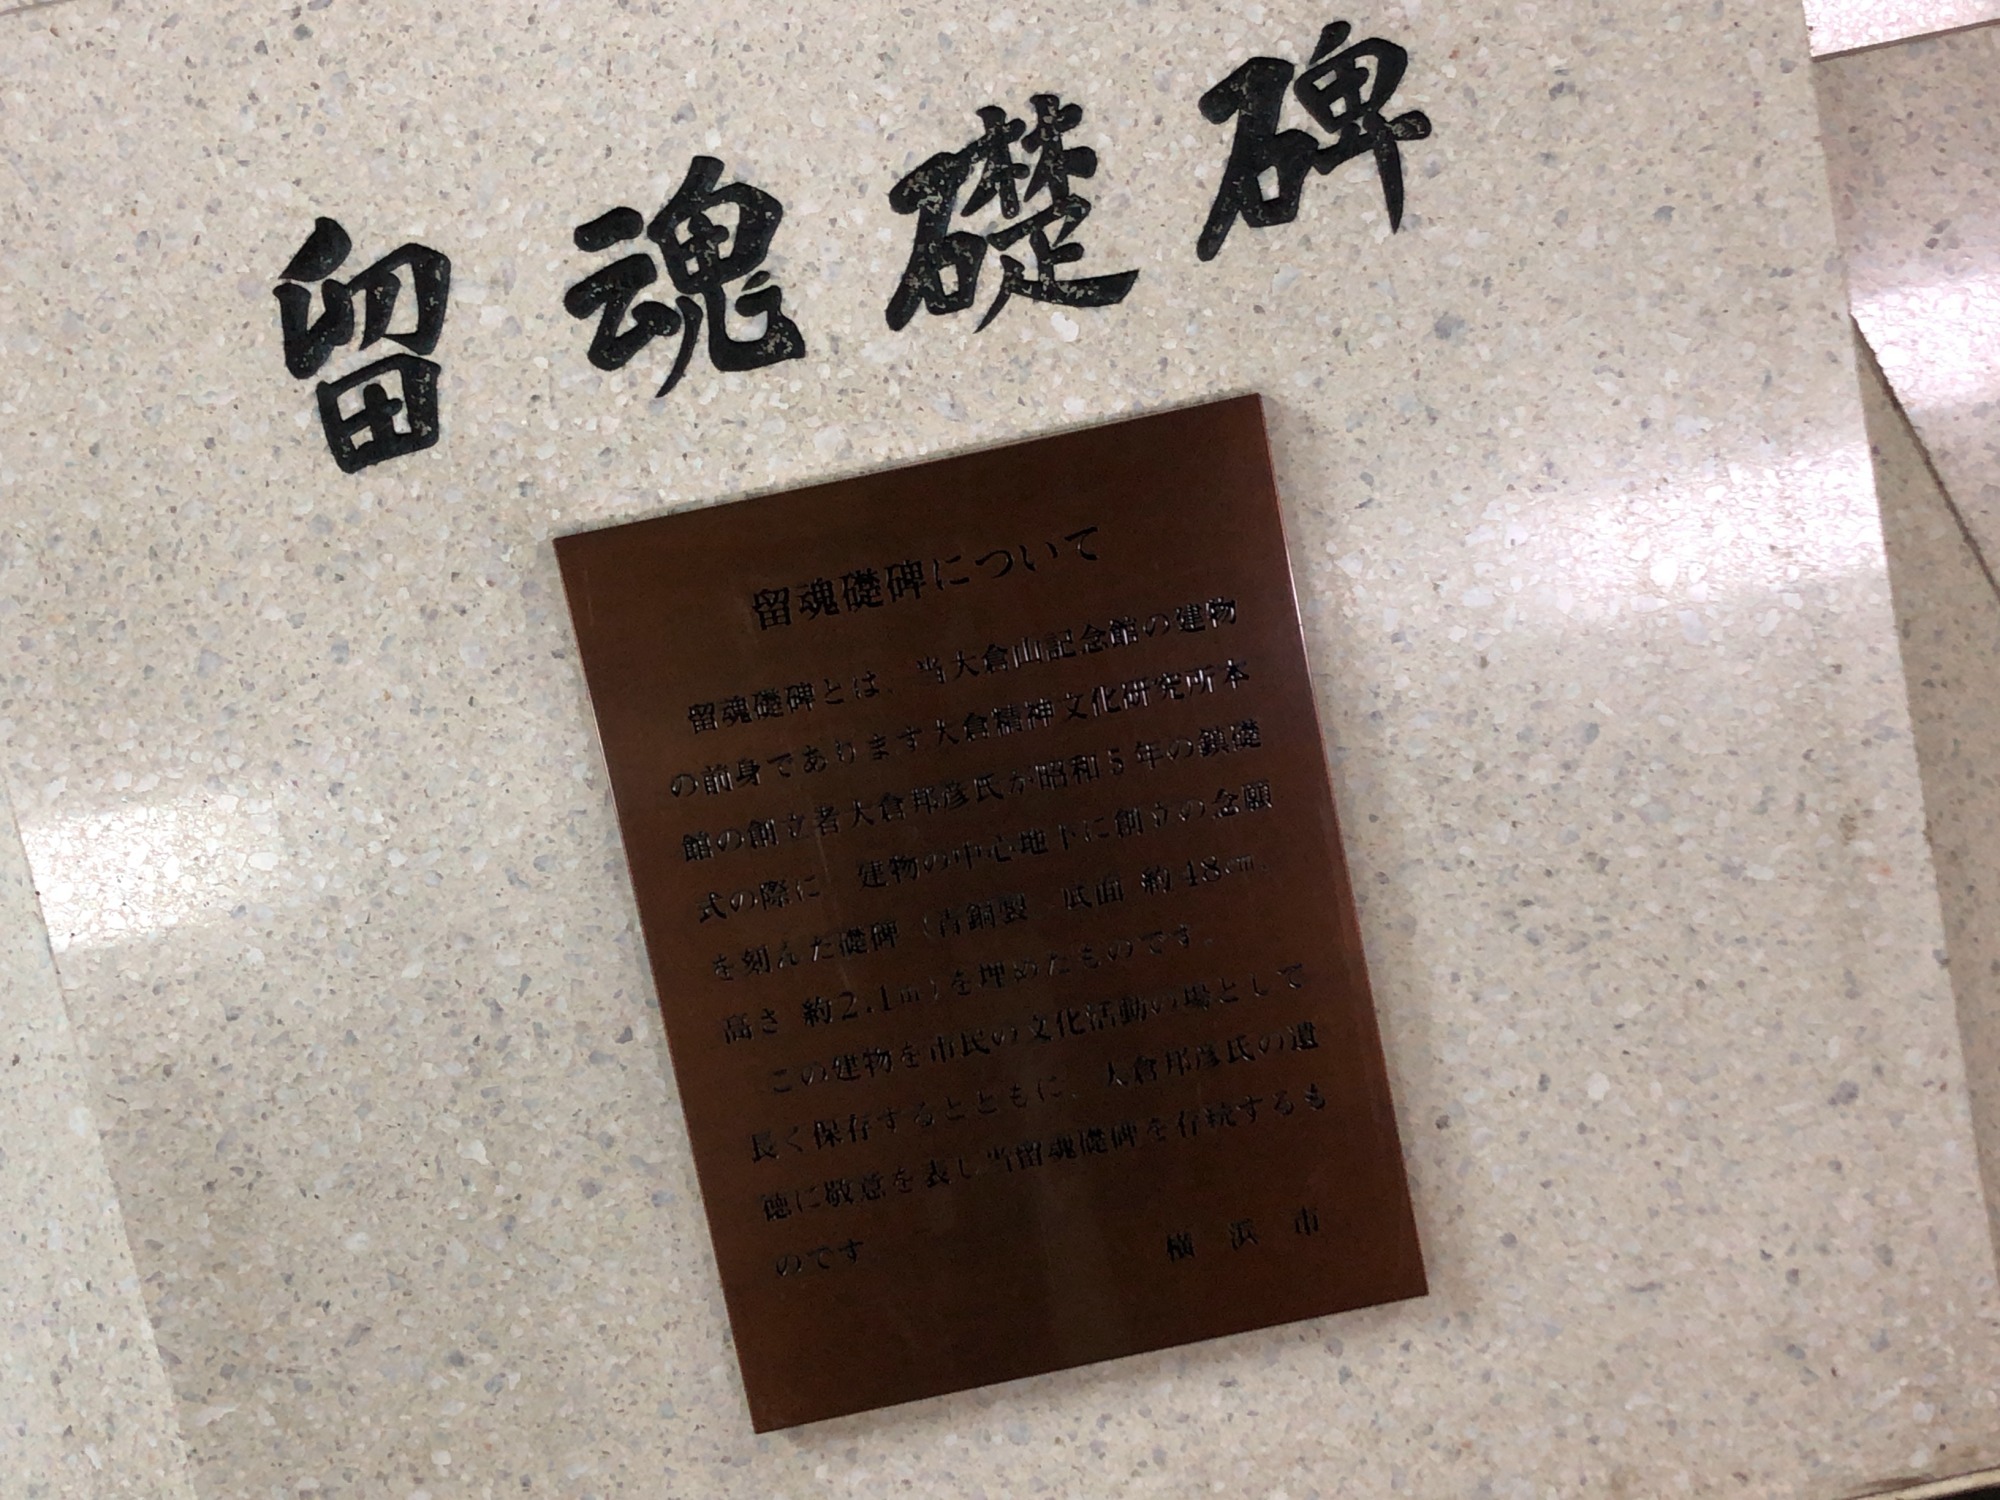 留魂礎碑
留魂礎碑について
留魂礎碑とは、当大倉山記念館の建物
の前身であります大倉精神文化研究所本
館の創立者大倉邦彦氏が昭和5年の鎮礎
式の際に 建物の中心地下に創立の念願
を刻んだ礎碑（青銅製 底面 約48cm、
高さ 約2.1m）を埋めたものです。
この建物を市民の文化活動の場として
長く保存するとともに、大倉邦彦氏の遺
徳に敬意を表し当留魂礎碑を存続するも
のです
横浜市